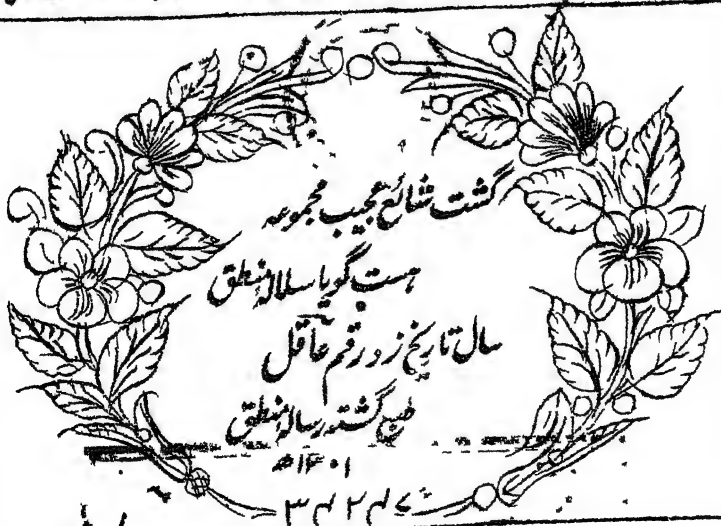 گشت شائع عجیب مجموعہ
ہست گویا سلالہ منطق
سال تاریخ زد رقم عاقل
طبع گشتہ رسالہ منطق
۱۳۰۱ھ